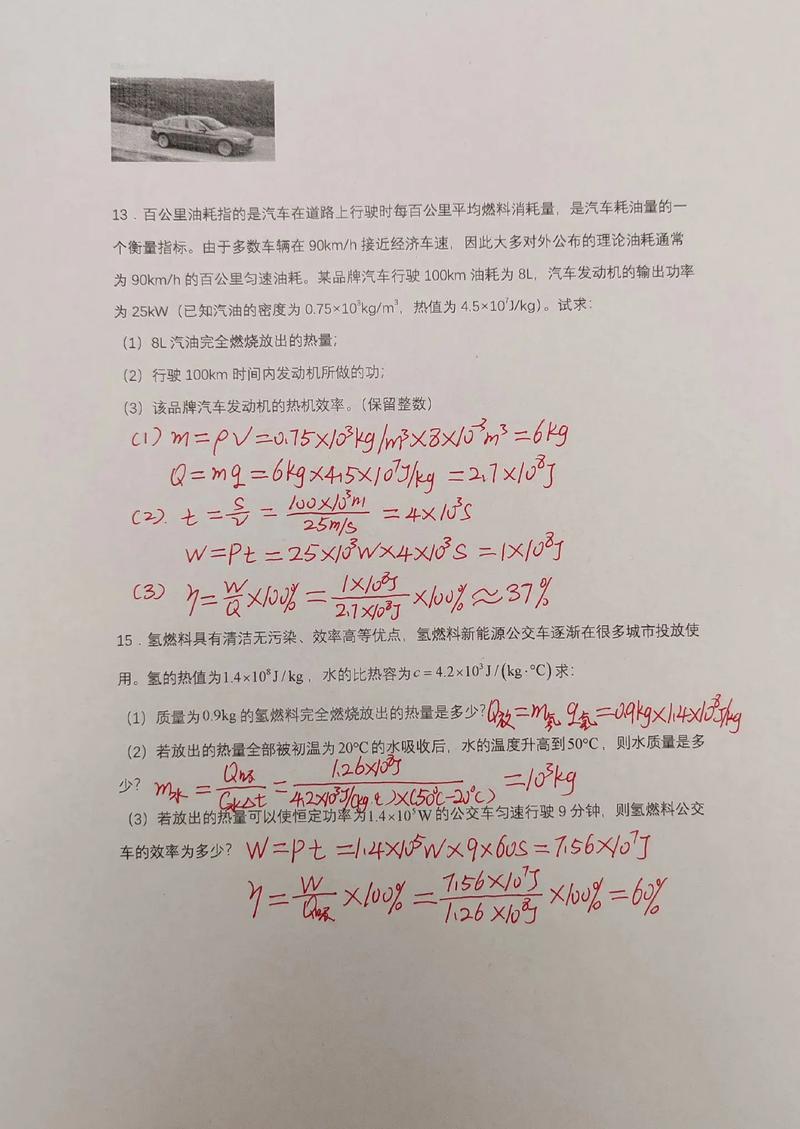 13．百公里油耗指的是汽车在道路上行驶时每百公里平均燃料消耗量，是汽车耗油量的一
个衡量指标。由于多数车辆在 90km/h 接近经济车速，因此大多对外公布的理论油耗通常
为 90km/h 的百公里匀速油耗。某品牌汽车行驶 100km 油耗为 8L，汽车发动机的输出功率
为 25kW（已知汽油的密度为 0.75×10³kg/m³，热值为 4.5×10⁷J/kg）。试求：
（1）8L 汽油完全燃烧放出的热量；
（2）行驶 100km 时间内发动机所做的功；
（3）该品牌汽车发动机的热机效率。（保留整数）
(1) m=ρV=0.75×10³kg/m³×8×10⁻³m³=6kg
Q=mq=6kg×4.5×10⁷J/kg=2.7×10⁸J
(2). t=s/v=100×10³m/25m/s=4×10³s
W=Pt=25×10³W×4×10³s=1×10⁸J
(3) η=W/Q×100%=1×10⁸J/2.7×10⁸J×100%≈37%
15．氢燃料具有清洁无污染、效率高等优点，氢燃料新能源公交车逐渐在很多城市投放使
用。氢的热值为1.4×10⁸J/kg，水的比热容为c=4.2×10³J/(kg·°C)求：
（1）质量为0.9kg的氢燃料完全燃烧放出的热量是多少？Q放=m氢q氢=0.9kg×1.4×10⁸J/kg
（2）若放出的热量全部被初温为20°C的水吸收后，水的温度升高到50°C，则水质量是多
少？m水=Q吸/C水Δt=1.26×10⁸J/4.2×10³J/(kg·℃)×(50℃-20℃)=10³kg
（3）若放出的热量可以使恒定功率为1.4×10⁵W的公交车匀速行驶 9 分钟，则氢燃料公交
车的效率为多少？W=Pt=1.4×10⁵W×9×60s=7.56×10⁷J
η=W/Q吸×100%=7.56×10⁷J/1.26×10⁸J×100%=60%